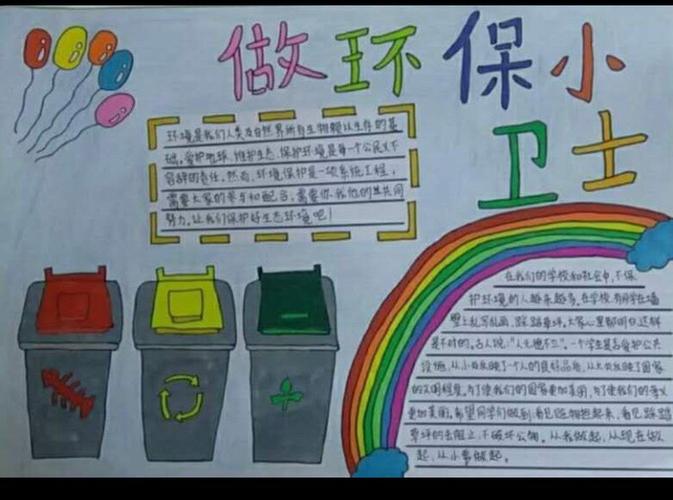 做环保小
卫士
环境是我们人类及自然界所有生物赖以生存的基
础。爱护地球、维护生态、保护环境是每一个公民义不
容辞的责任。然而,环境保护是一项系统工程,
需要大家的参与和配合,需要你我他的共同
努力。让我们保护好生态环境吧!
在我们的学校和社会中,不保
护环境的人越来越多。在学校,有同学在墙
壁上乱写乱画、踩踏草坪。大家心里都明白这样
是不对的。名人说:“人无德不立”。一个学生是否爱护公共
设施,从小处反映了个人的良好品质,从大处反映了国家
的文明程度。为了使我们的国家更加美丽,为了使我们的
更加美丽。希望同学们做到:看见随物捡起来,看见踩踏
草坪的去阻止,不破坏公物。从我做起,从现在做
起,从小事做起。